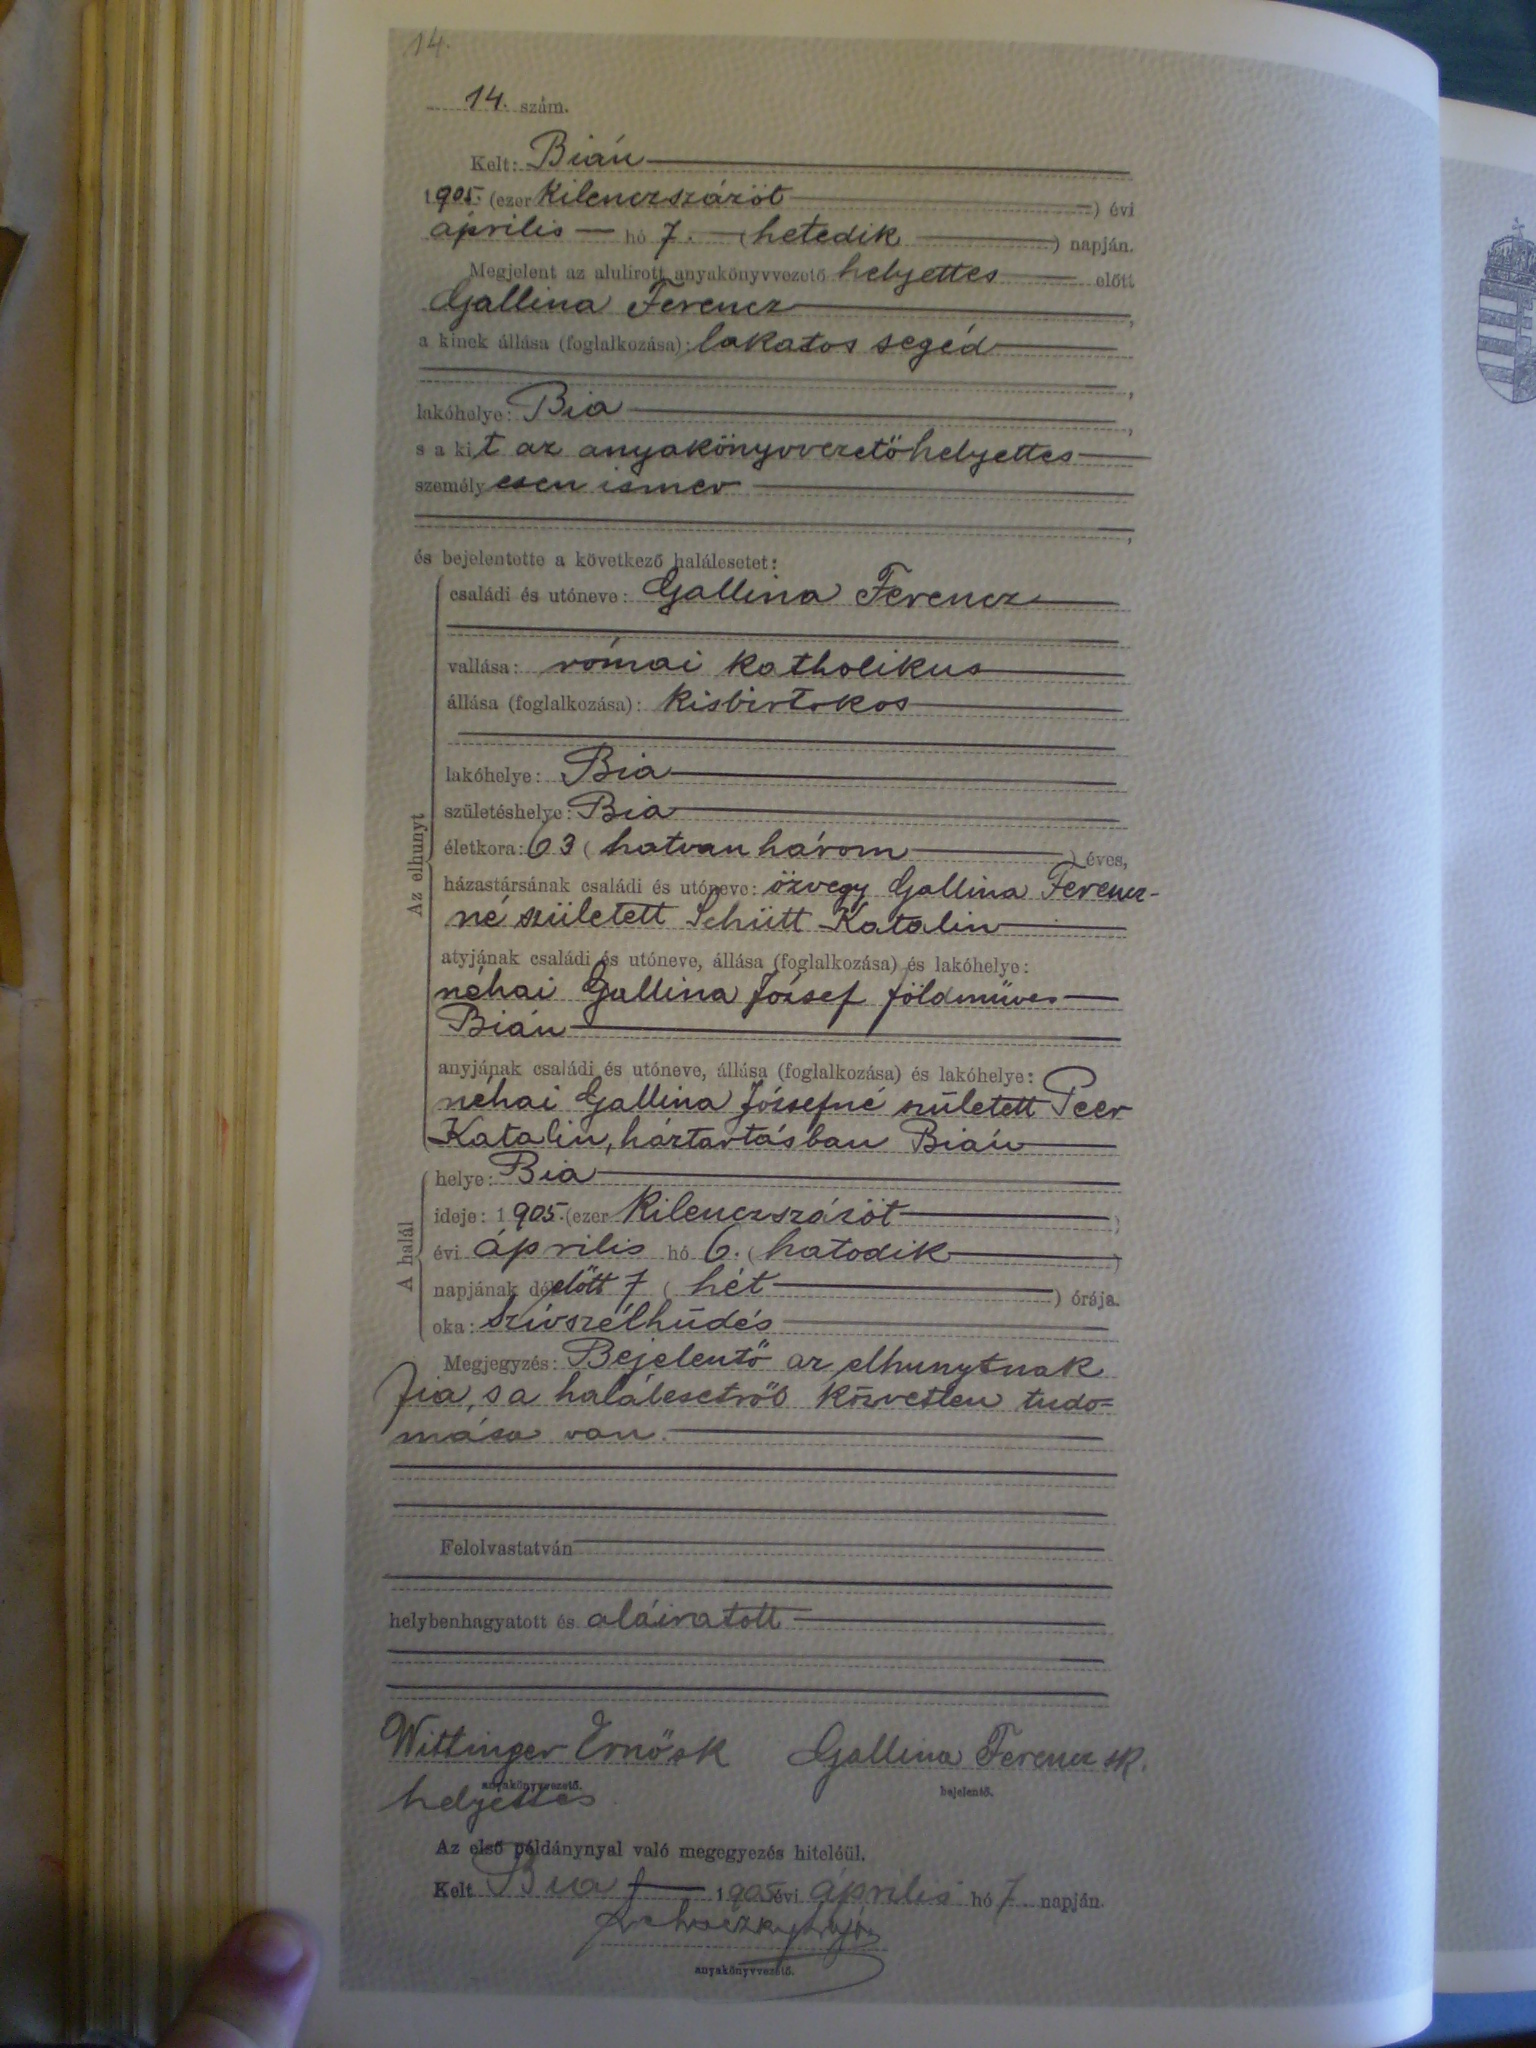 14.
14. szám.
Kelt: Bián
1905. (ezer Kilenczszázöt ) évi
április hó 7. (hetedik ) napján.
Megjelent az alulírott anyakönyvvezető helyettes előtt
Gallina Ferencz,
a kinek állása (foglalkozása): lakatos segéd
,
lakóhelye: Bia,
s a kit az anyakönyvvezetőhelyettes
személyesen ismer
,
és bejelentette a következő halálesetet:
Az elhunyt
családi és utóneve: Gallina Ferencz
vallása: római katholikus
állása (foglalkozása): Kisbirtokos
lakóhelye: Bia
születéshelye: Bia
életkora: 63 (hatvanhárom ) éves,
házastársának családi és utóneve: özvegy Gallina Ferencz-
né született Schütt Katalin
atyjának családi és utóneve, állása (foglalkozása) és lakóhelye:
néhai Gallina József földműves
Bián
anyjának családi és utóneve, állása (foglalkozása) és lakóhelye:
néhai Gallina Józsefné született Peer
Katalin, háztartásban Bián
A halál
helye: Bia
ideje: 1905. (ezer Kilenczszázöt )
évi április hó 6. (hatodik )
napjának délelőtt 7 (hét ) órája.
oka: Szívszélhűdés
Megjegyzés: Bejelentő az elhunytnak
fia, s a halálesetről közvetlen tudo=
mása van.
Felolvastatván
helybenhagyatott és aláiratott
Wittinger Ernő sk Gallina Ferencz sk.
anyakönyvvezető. bejelentő.
helyettes
Az első példánynyal való megegyezés hiteléül.
Kelt Bia 1905 évi április hó 7. napján.
anyakönyvvezető.